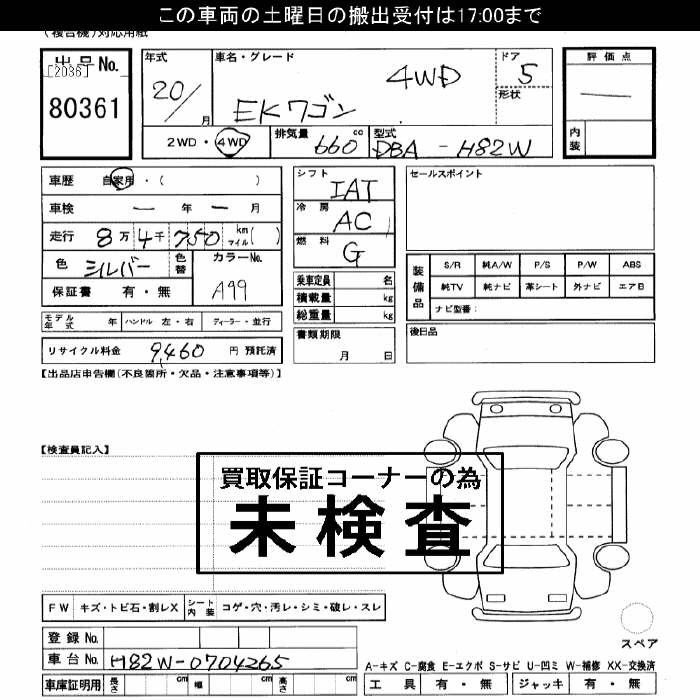 この車両の土曜日の搬出受付は17:00まで
(複合機)対応用紙
出品No.
[2036]
80361
年式
20/
月
車名・グレード
4WD
EKワゴン
ドア
5
形状
評価点
—
内装
2WD・4WD
排気量
660 cc
型式
DBA - H82W
車歴 自家用・( )
車検 — 年 — 月
走行 8万4千750 km マイル( )
色 シルバー 色替
カラーNo.
A99
保証書 有・無
モデル年式 年 ハンドル 左・右 ディーラー・並行
リサイクル料金 9,460 円 預託済
シフト
IAT
冷房
AC
燃料
G
乗車定員 名
積載量 kg
総重量 kg
書類期限
月 日
セールスポイント
装備品
S/R 純A/W P/S P/W ABS
純TV 純ナビ 革シート 外ナビ エアB
ナビ型番:
後日品
【出品店申告欄(不良箇所・欠品・注意事項等)】
【検査員記入】
買取保証コーナーの為
未検査
FW キズ・トビ石・割レX シート内装 コゲ・穴・汚レ・シミ・破レ・スレ
登録No.
車台No. H82W-0704265
車庫証明用 長さ cm 幅 cm 高さ cm
スペア
A-キズ C-腐食 E-エクボ S-サビ U-凹ミ W-補修 XX-交換済
工具 有・無 ジャッキ 有・無